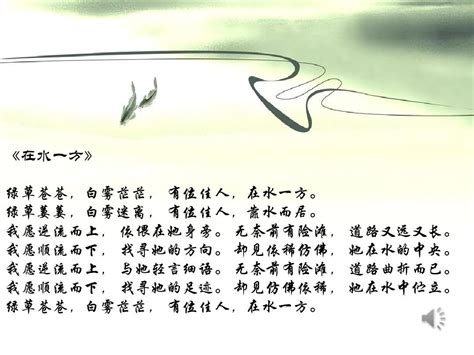 《在水一方》
绿草苍苍，白雾茫茫，有位佳人，在水一方。
绿草萋萋，白雾迷离，有位佳人，靠水而居。
我愿逆流而上，依偎在她身旁。无奈前有险滩，道路又远又长。
我愿顺流而下，找寻她的方向。却见依稀仿佛，她在水的中央。
我愿逆流而上，与她轻言细语。无奈前有险滩，道路曲折而已。
我愿顺流而下，找寻她的足迹。却见仿佛依稀，她在水中伫立。
绿草苍苍，白雾茫茫，有位佳人，在水一方。